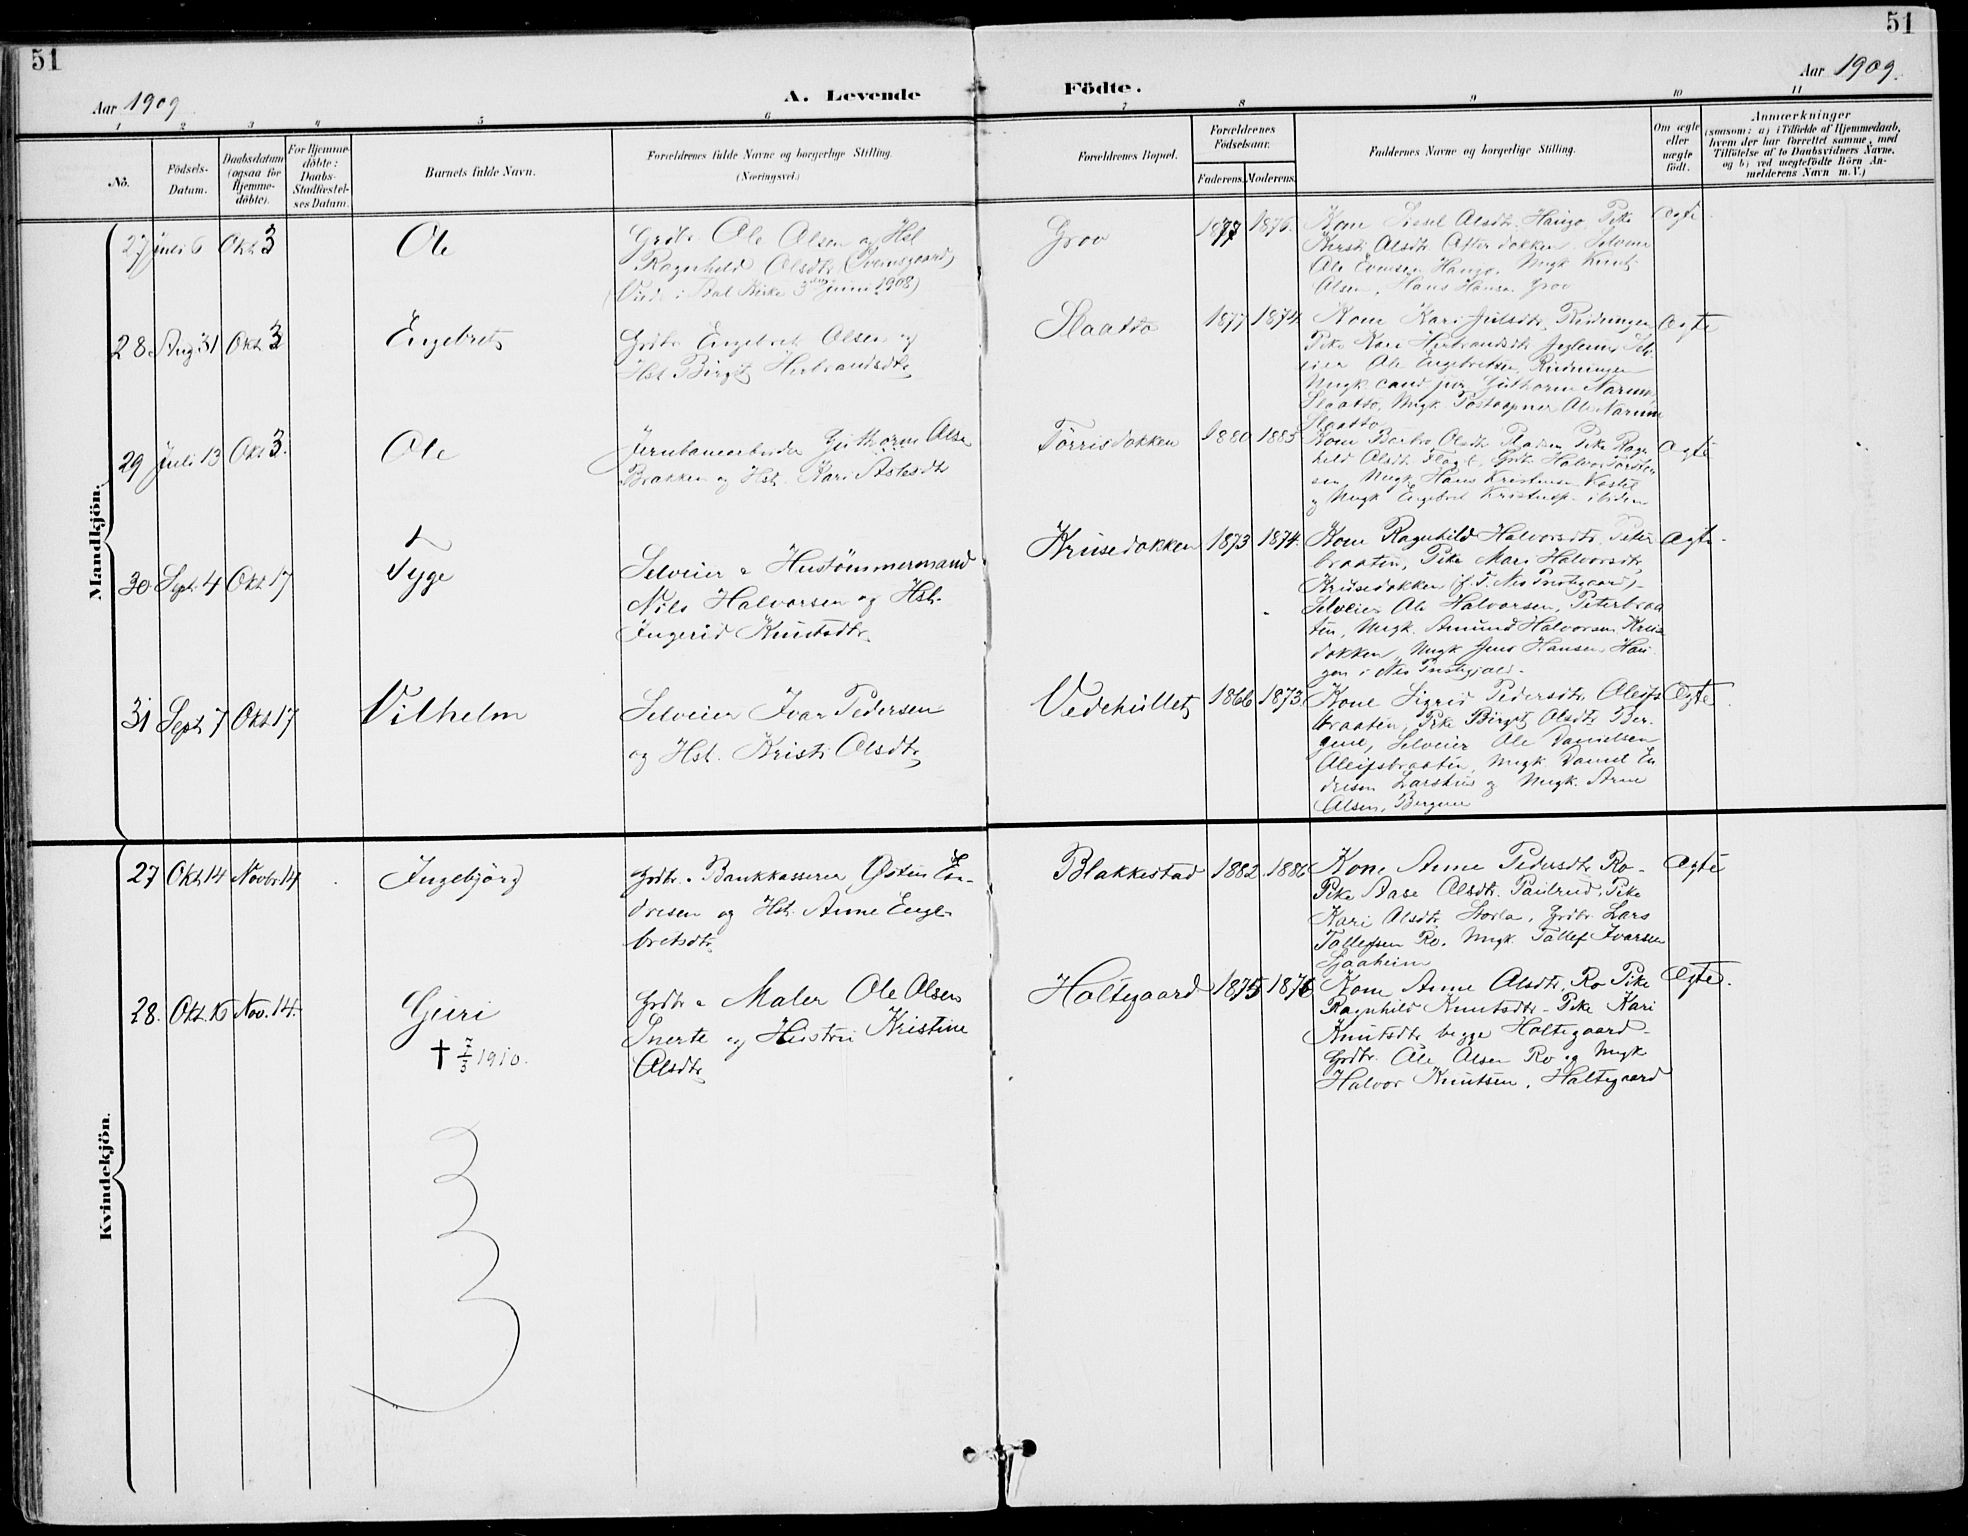 51
51
Aar 1909
A. Levende
Födte.
Aar 1909.
1 2 3 4 5 6 7 8 9 10 11
No.
Födsels-
Datum.
Daabsdatum
(ogsaa for
Hjemme-
döbte).
For Hjemme-
döbte:
Daabs-
Stadfæstel-
ses Datum.
Barnets fulde Navn.
Forældrenes fulde Navne og borgerlige Stilling.
(Næringsvei.)
Forældrenes Bopæl.
Forældrenes
Födselsaar.
Faderens. Moderens.
Faddernes Navne og borgerlige Stilling.
Om ægte
eller
uægte
födt.
Anmærkninger
(saasom: a) i Tilfælde af Hjemmedaab,
hvem der har forrettet samme, med
Tilföielse af to Daabsvidners Navne,
og b) ved uægtefödte Börn An-
melderens Navn m. V.)
Mandkjön.
27 Juli 6 Okt 3
Ole
Grdbr. Ole Olsen og Hst
Ragnhild Olsdtr.
(Viede i Aal Kirke 3die Juni 1908)
Grov
1877 1876.
Kone Sissel Olsdtr. Haugo, Pike
Kersti Olsdtr. Selveier
Ole Evensen Haugo. Ungk Knut
Olsen, Hans Hansen Grov
ægte
28. Aug 31 Okt 3
Engebret
Grdbr. Engebret Olsen og
Hst. Birgit Herbrandsdtr.
Slaatto
1877 1874.
Kone Kari Juelsdtr. Rudningen
Pike Kari Herbrandsdtr. Sel-
veier Ole Engebretsen, Rudningen
Ungk. cand. jur. Guthorm Narum,
Slaatto, Ungk. Postaapner Ole Narum
Slaatto
Ægte
29 Juli 13 Okt 3.
Ole
Jernbanearbeider Guthorm Olsen
Brakken og Hst. Kari Aslesdtr
Törrisdokken
1880 1885
Kone Barbro Olsdtr. Pladsen, Pike Ragn-
hild Olsdtr. Grdbr. Halvor Torsten-
sen, Ungk. Hans Kristensen
og Ungk Engebret Kristensen ibidem
Ægte
30 Sept. 4 Okt 17
Tyge
Selveier & Hustömmermand
Nils Halvorsen og Hst.
Ingerid Knutsdtr.
Krusedokken
1873 1874.
Kone Ragnhild Halvorsdtr. Peter-
braaten, Pike Mari Halvorsdtr.
Krusedokken (f. T. Nes Prestegaard) -
Selveier Ole Halvorsen, Peterbraa-
ten, Ungk. Amund Halvorsen Kruse-
dokken, Ungk Jens Hansen, Hau-
gen i Nes Prestegjæld -
Ægte
31 Sept. 7 Okt 17
Vilhelm
Selveier Ivar Pedersen
og Hst. Kristi Olsdtr.
Vedehullet
1866 1873.
Kone Sigrid Pedersdtr. Oleifs-
braaten, Pike Birgit Olsdtr. Ber-
gene, Selveier Ole Danielsen
Oleifsbraaten, Ungk Daniel En-
dresen Larshus og Ungk. Arne
Olsen, Bergene
Ægte
Kvindekjön.
27 Okt. 14 Novbr. 14
Ingebjörg
Grdbr. & Bankkasserer Østen En-
dresen og Hst. Anne Enge-
bretsdtr.
Blakkestad
1882 1886
Kone Anne Pedersdtr. Ro-
Pike Aase Olsdtr. Paulrud, Pike
Kari Olsdtr. Storla, Grdbr. Lars
Tollefsen Ro. Ungk. Tollef Ivarsen
Sjaaheim
Ægte
28. Okt. 16 Nov. 14.
Guri
† 7/3 1910.
Grdbr. & Maler Ole Olsen
Snerte og Hustru Kristine
Olsdtr.
Holtegaard
1875 1876
Kone Anne Olsdtr. Ro Pike
Ragnhild Knutsdtr - Pike Kari
Knutsdtr, begge Holtegaard -
Grdbr. Ole Olsen Ro og Ungk
Halvor Knutsen, Holtegaard
Ægte.